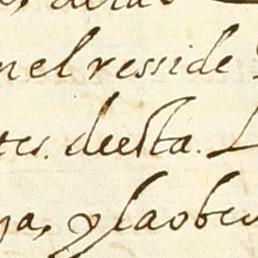 nel resside
tes. deesta. L
ya, y la obeu